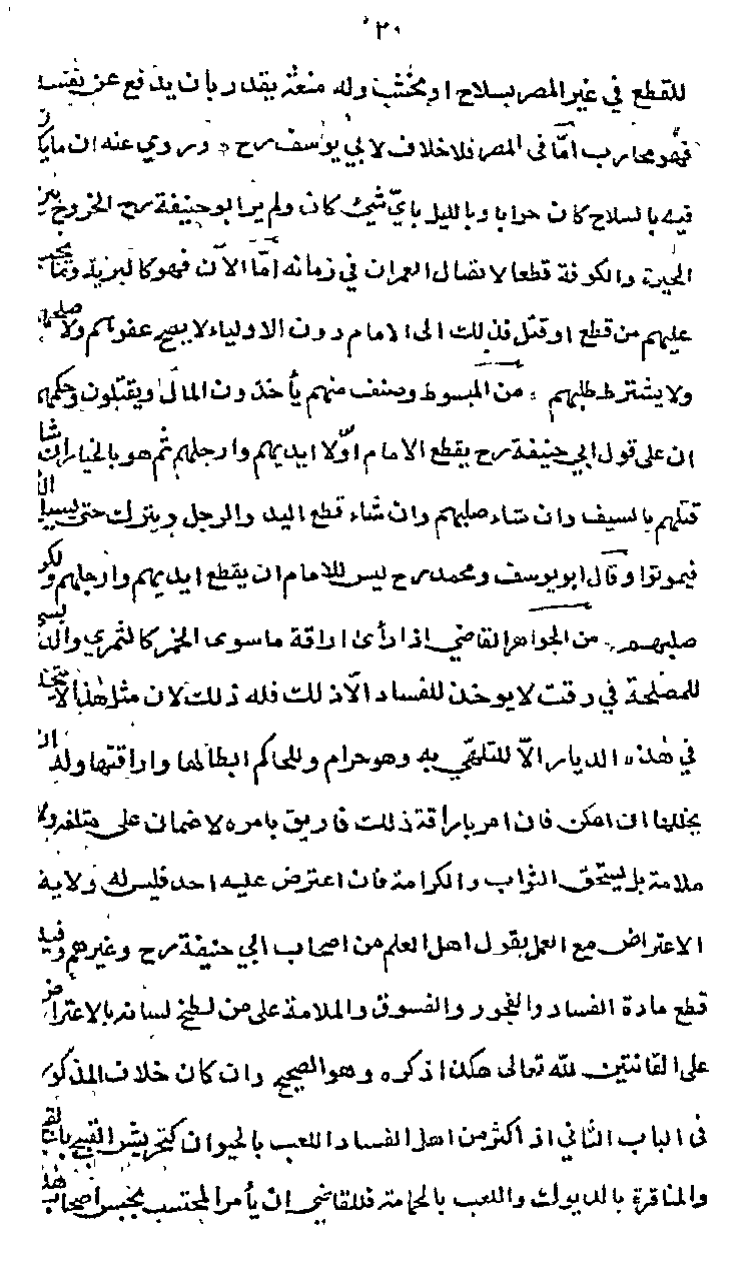 للقطع في غير المصر بسلاح او بخشب وله منعة يقدر بان يدفع عن نفسه
فهو محارب امّا فى المصر فلا خلاف لابي يوسف رح وروي عنه ان مايكون
فيه بالسلاح كان حرابا وبالليل بايّ شيئ كان ولم ير ابو حنيفة رح الخروج بين
الحيرة والكوفة قطعا لاتصال العمران في زمانه امّا الآن فهو كالبرية وما يجب
عليهم من قطع او قتل فذلك الى الامام دون الاولياء لا يصح عفوهم ولا صلحهم
ولا يشترط طلبهم من المبسوط وصنف منهم يأخذون المال ويقتلون وحكمهم
ان على قول ابي حنيفة رح يقطع الامام اوّلا ايديهم وارجلهم ثم هو بالخيار ان شاء
قتلهم بالسيف وان شاء صلبهم وان شاء قطع اليد والرجل ويترك حتى يسيل
فيموتوا وقال ابو يوسف ومحمد رح ليس للامام ان يقطع ايديهم وارجلهم ولكن
صلبهم من الجواهر القاضي اذا رأى اراقة ما سوى الخمر كالتمري
للمصلحة في وقت لا يوخذ للفساد الّا ذلك فله ذلك لان مثل هذا لا يتخذ
في هذه الديار الّا للتلهّي به وهو حرام وللحاكم ابطالها واراقتها وله
يخللها ان امكن فان امر باراقة ذلك فاريق بامره لا ضمان على متلفه ولا
ملامة بل يستحق الثواب والكرامة فان اعترض عليه احد فليس له ولاية
الاعتراض مع العمل بقول اهل العلم من اصحاب ابي حنيفة رح وغيرهم وفيه
قطع مادة الفساد والفجور والفسوق والملامة على من لطخ لسانه بالاعتراض
على القانتين لله تعالى هكذا ذكره وهو الصحيح وان كان خلاف المذكور
فى الباب الثاني اذ اكثر من اهل الفساد اللعب بالحيوان كتحريش القبج
والمناقرة بالديوك واللعب بالحمامة فللقاضي ان يأمر المحتسب بحبس اصحاب هذا